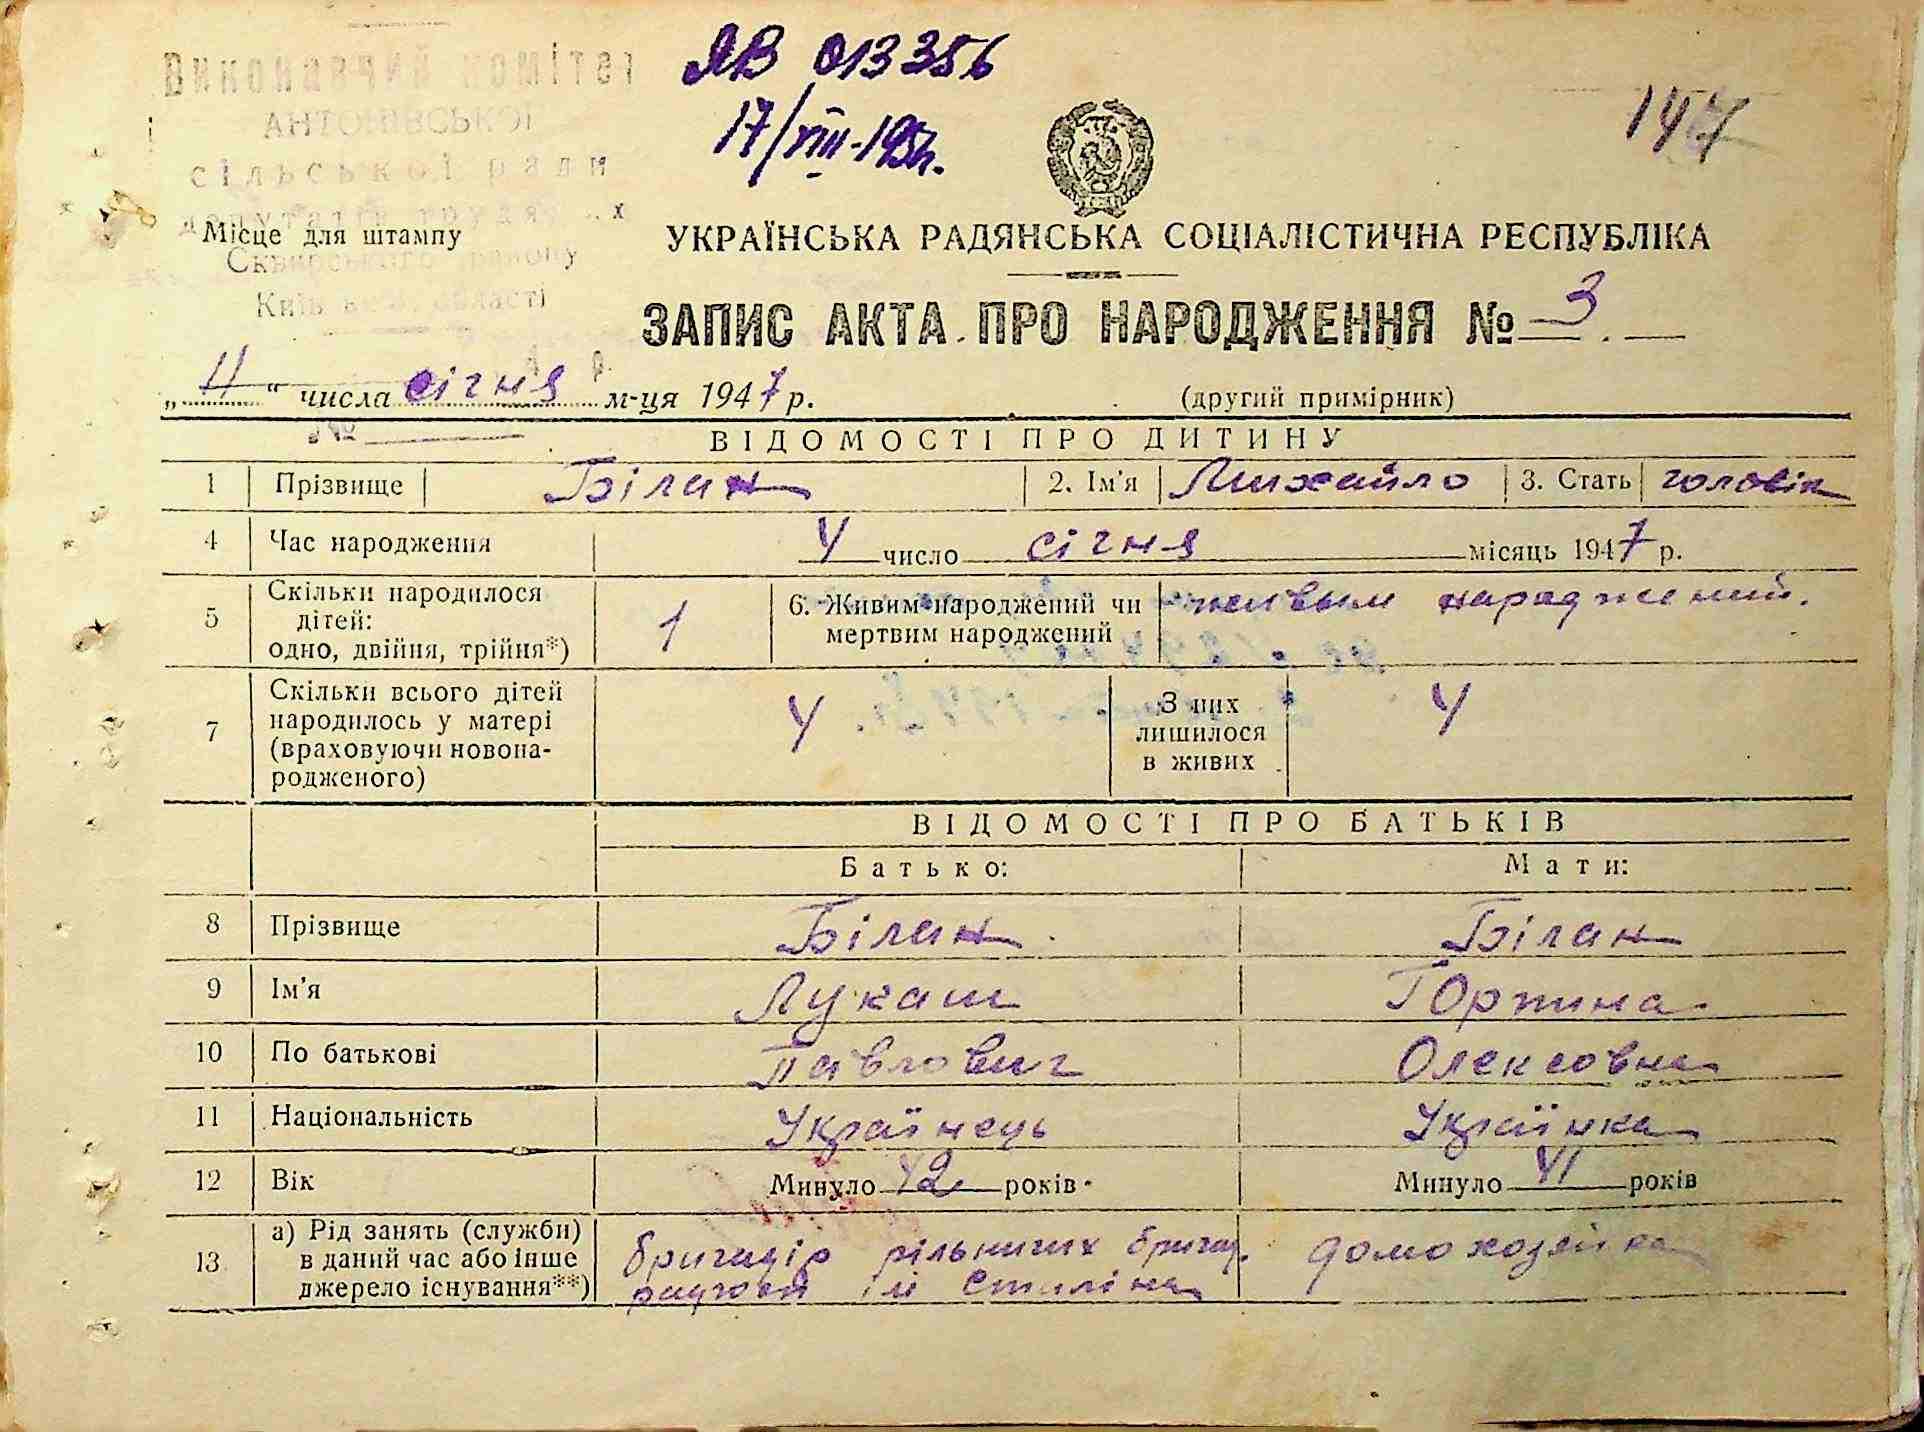 ЯВ 013356
17/VIII-195 р.
147
Виконавчий комітет
АНТОНІВСЬКОЇ
сільської ради
депутатів трудящих
Місце для штампу
Сквирського району
Київської області
УКРАЇНСЬКА РАДЯНСЬКА СОЦІАЛІСТИЧНА РЕСПУБЛІКА
ЗАПИС АКТА ПРО НАРОДЖЕННЯ № 3
„11“ числа січня м-ця 1947 р. (другий примірник)
№
ВІДОМОСТІ ПРО ДИТИНУ
1 Прізвище Білан 2. Ім'я Михайло 3. Стать чоловік
4 Час народження 4 число січня місяць 1947 р.
5 Скільки народилося
дітей:
одно, двійня, трійня*) 1
6. Живим народжений чи
мертвим народжений живым народжений.
7 Скільки всього дітей
народилось у матері
(враховуючи новона-
родженого) 4
З них
лишилося
в живих 4
ВІДОМОСТІ ПРО БАТЬКІВ
Батько: Мати:
8 Прізвище Білан Білан
9 Ім'я Лукаш Юрпина
10 По батькові Павлович Олексовна
11 Національність Українець Українка
12 Вік Минуло 42 років Минуло 41 років
13 а) Рід занять (служби)
в даний час або інше
джерело існування**)
бригадір рільничих бригад.
ім Сталіна
домохозяйка